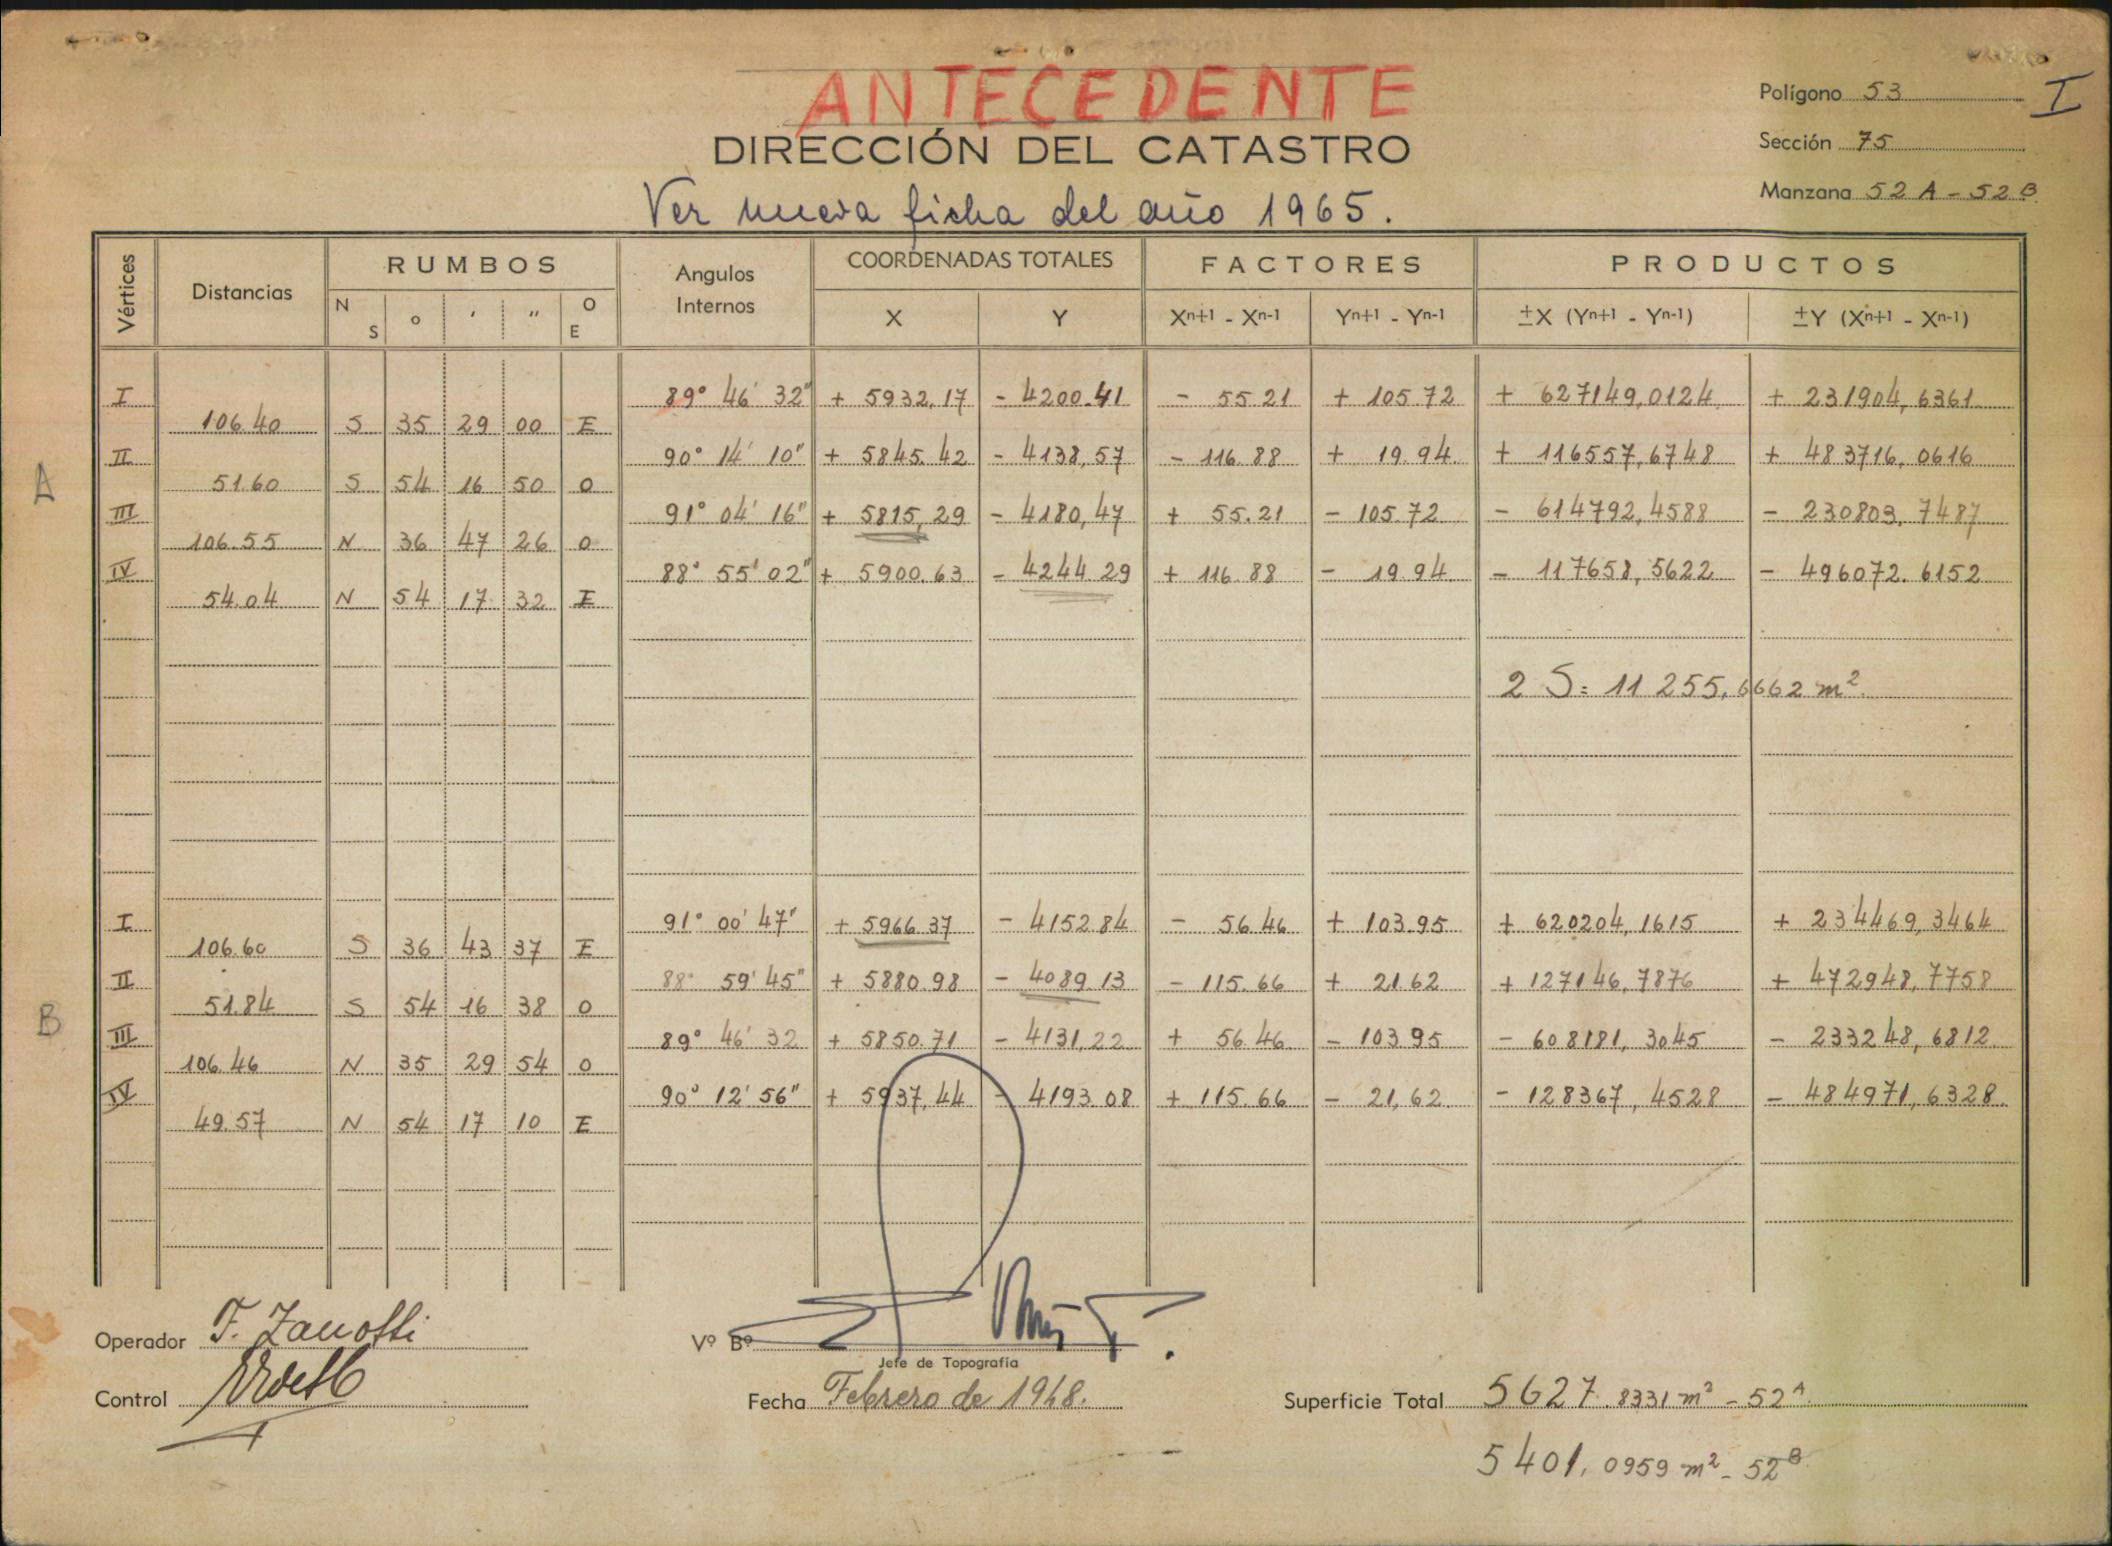 ANTECEDENTE
DIRECCIÓN DEL CATASTRO
Ver nueva ficha del año 1965.
Polígono 53
I
Sección 75
Manzana 52 A - 52 B
Vértices Distancias RUMBOS Angulos Internos COORDENADAS TOTALES FACTORES PRODUCTOS
N S o ' " O E X Y Xn+1 - Xn-1 Yn+1 - Yn-1 ±X (Yn+1 - Yn-1) ±Y (Xn+1 - Xn-1)
A
I 89° 46' 32" + 5932,17 - 4200.41 - 55.21 + 105.72 + 627149,0124 + 231904,6361
106.40 S 35 29 00 E
II 90° 14' 10" + 5845.42 - 4138,57 - 116.88 + 19.94 + 116557,6748 + 483716,0616
51.60 S 54 16 50 O
III 91° 04' 16" + 5815,29 - 4180,47 + 55.21 - 105.72 - 614792,4588 - 230803.7487
106.55 N 36 47 26 O
IV 88° 55' 02" + 5900.63 - 4244.29 + 116.88 - 19.94 - 117658,5622 - 496072.6152
54.04 N 54 17 32 E
2 S = 11 255,6662 m²
B
I 91° 00' 47" + 5966.37 - 4152.84 - 56.46 + 103.95 + 620204,1615 + 234469,3464
106.60 S 36 43 37 E
II 88° 59' 45" + 5880.98 - 4089.13 - 115.66 + 21.62 + 127146,7876 + 472948,7758
51.84 S 54 16 38 O
III 89° 46' 32 + 5850.71 - 4131,22 + 56.46 - 103.95 - 608181,3045 - 233248,6812
106.46 N 35 29 54 O
IV 90° 12' 56" + 5937,44 - 4193.08 + 115.66 - 21,62 - 128367,4528 - 484971,6328
49.57 N 54 17 10 E
Operador F. Zanotti
Vº Bº
Jefe de Topografía
Control
Fecha Febrero de 1948.
Superficie Total 5627.8331 m² - 52 A
5401,0959 m² - 52 B